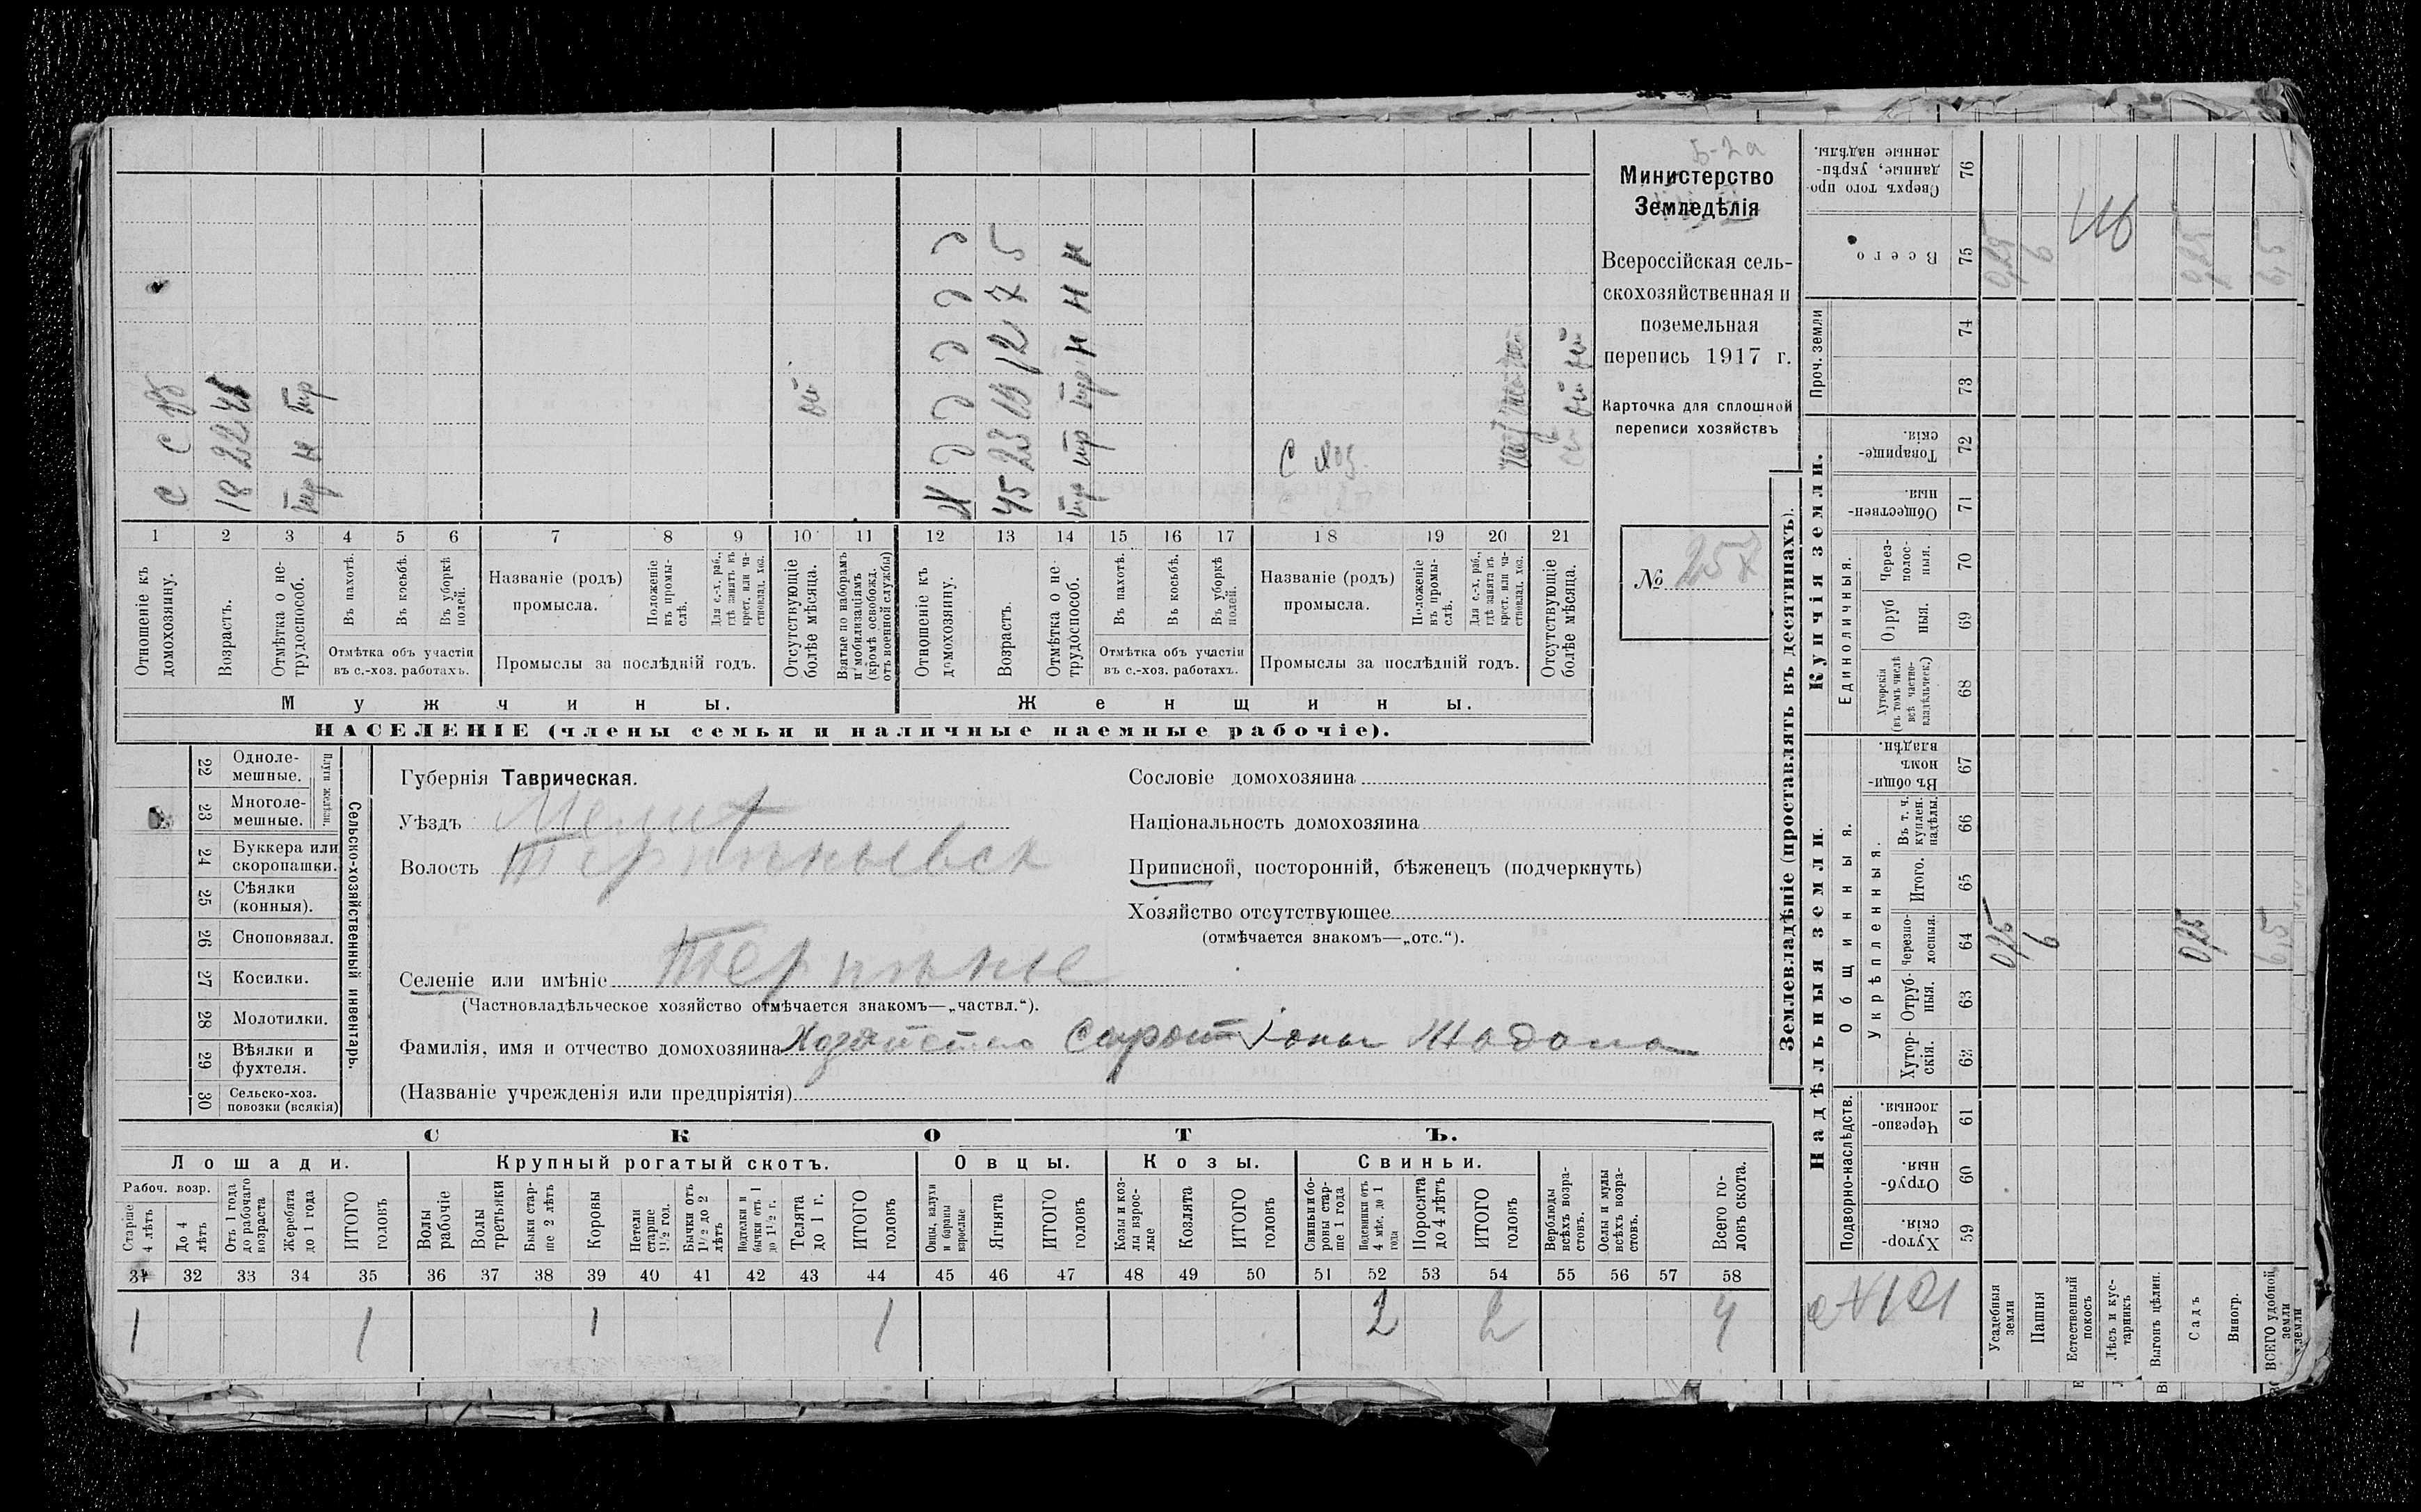 Б-2а
Министерство
Земледѣлія
Всероссійская сель-
скохозяйственная и
поземельная
перепись 1917 г.
Карточка для сплошной
переписи хозяйствъ
№ 257
с с
18 22
тр н тр
Ж д д д д д
45 23 19 12 7 5
тр тр тр н н н
с хоз.
1 2 3 4 5 6 7 8 9 10 11 12 13 14 15 16 17 18 19 20 21
Отношеніе къ домохозяину.
Возрастъ.
Отмѣтка о не-трудоспособ.
Въ пахотѣ.
Въ косьбѣ.
Въ уборкѣ полей.
Отмѣтка объ участіи
въ с.-хоз. работахъ.
Названіе (родъ)
промысла.
Положеніе въ промы-слѣ.
Для с.-х. раб., гдѣ занятъ въ крест. или ча-стновлад. хоз.
Промыслы за послѣдній годъ.
Отсутствующіе болѣе мѣсяца.
Взятые по наборамъ и мобилизаціямъ (кромѣ освобожд. отъ военной службы)
Отношеніе къ домохозяину.
Возрастъ.
Отмѣтка о не-трудоспособ.
Въ пахотѣ.
Въ косьбѣ.
Въ уборкѣ полей.
Отмѣтка объ участіи
въ с.-хоз. работахъ.
Названіе (родъ)
промысла.
Положеніе въ промы-слѣ.
Для с.-х. раб., гдѣ занята въ крест. или ча-стновлад. хоз.
Промыслы за послѣдній годъ.
Отсутствующіе болѣе мѣсяца.
Мужчины. Женщины.
НАСЕЛЕНІЕ (члены семьи и наличные наемные рабочіе).
Сельско-хозяйственный инвентарь.
Плуги желѣзн.
22 Одноле-мешные.
23 Многоле-мешные.
24 Буккера или скоропашки.
25 Сѣялки (конныя).
26 Сноповязал.
27 Косилки.
28 Молотилки.
29 Вѣялки и фухтеля.
30 Сельско-хоз. повозки (всякія)
Губернія Таврическая.
Уѣздъ Мелит
Волость Терпѣньевск
Селеніе или имѣніе Терпѣніе
(Частновладѣльческое хозяйство отмѣчается знакомъ—„частвл.“).
Фамилія, имя и отчество домохозяина Хозяйство Сирот Іоны Жадана
(Названіе учрежденія или предпріятія)
Сословіе домохозяина
Національность домохозяина
Приписной, посторонній, бѣженецъ (подчеркнуть)
Хозяйство отсутствующее
(отмѣчается знакомъ—„отс.“).
СКОТЪ.
Лошади. Крупный рогатый скотъ. Овцы. Козы. Свиньи.
Рабоч. возр.
Старше 4 лѣтъ
До 4 лѣтъ
Отъ 1 года до рабочаго возраста
Жеребята до 1 года
ИТОГО головъ
Волы рабочіе
Волы третьяки
Быки стар-ше 2 лѣтъ
Коровы
Нетели старше 1 1/2 год.
Бычки отъ 1 1/2 до 2 лѣтъ
Подтелки и бычки отъ 1 до 1 1/2 г.
Телята до 1 г.
ИТОГО головъ
Овцы, валухи и бараны взрослые
Ягнята
ИТОГО головъ
Козы и коз-лы взрос-лые
Козлята
ИТОГО головъ
Свиньи и бо-ровы стар-ше 1 года
Подсвинки отъ 4 мѣс. до 1 года
Поросята до 4 лѣтъ
ИТОГО головъ
Верблюды всѣхъ возра-стовъ.
Ослы и мулы всѣхъ возра-стовъ.
Всего го-ловъ скота.
31 32 33 34 35 36 37 38 39 40 41 42 43 44 45 46 47 48 49 50 51 52 53 54 55 56 57 58
1 1 1 1 2 2 4
Землевладѣніе (проставлять въ десятинахъ).
Надѣльныя земли. Купчія земли. Проч. земли
Подворно-наслѣдств.
Общинныя.
Укрѣпленныя.
Единоличныя.
59 Хутор-скія.
60 Отруб-ныя.
61 Черезпо-лосныя.
62 Хутор-скія.
63 Отруб-ныя.
64 Черезпо-лосныя.
65 Итого.
66 Въ т. ч. куплен. надѣлы.
67 Въ общи-номъ владѣн.
68 Хуторскія (въ томъ числѣ всѣ частно-владѣльческ.)
69 Отруб ныя.
70 Через-полос-ныя.
71 Обществен-ныя.
72 Товарище-скія.
73
74
75 Всего
76 Сверхъ того про-данные, укрѣп-ленные надѣлы.
Усадебныя земли 0,25 0,25
Пашня 6 6
Естественный покосъ
Лѣсъ и кус-тарникъ
Выгонъ цѣлин.
Садъ 0,25 0,25
Виногр.
ВСЕГО удобной земли 6,5 6,5